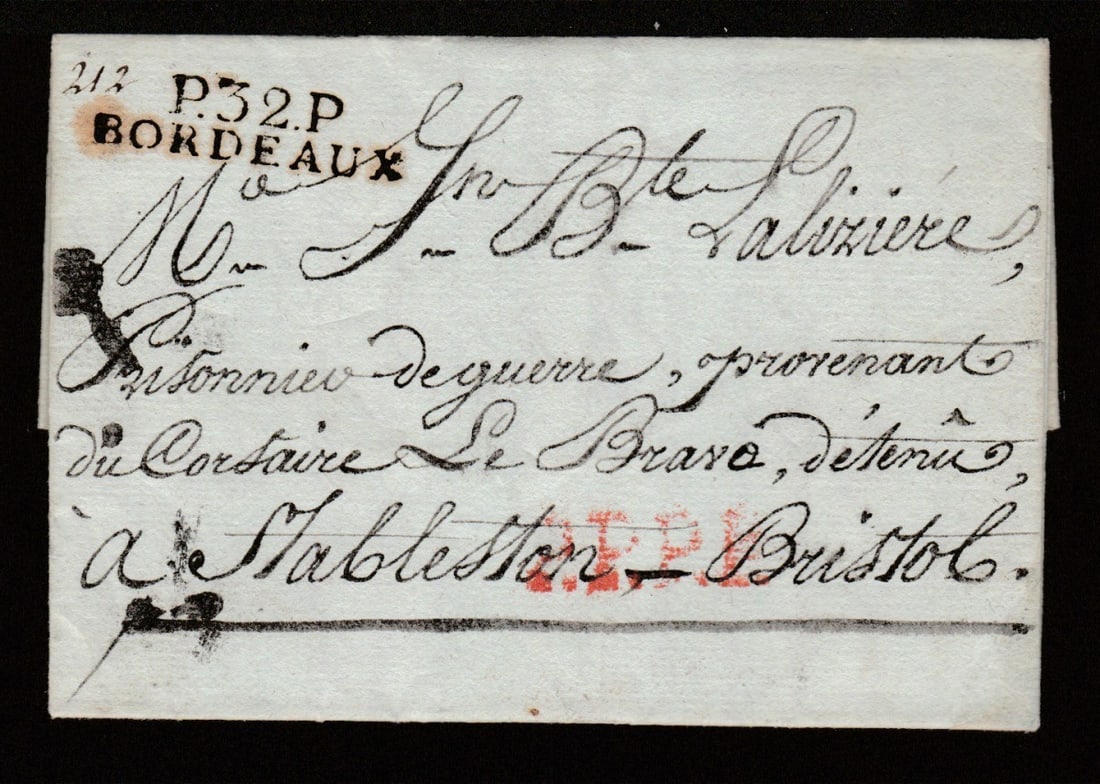 212
P.32.P
BORDEAUX
Mr. Jn Bte Lalizière,
Prisonnier de guerre, provenant
du Corsaire Le Brave, détenû,
à Stableston, – Bristol.
P.P.P.P.